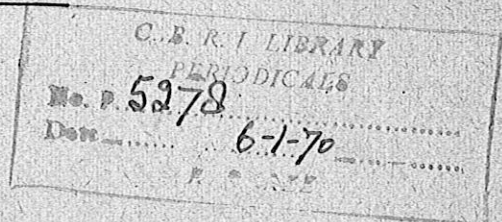 C.B.R.I LIBRARY
PERIODICALS
No. P. 5278
Date 6-1-70